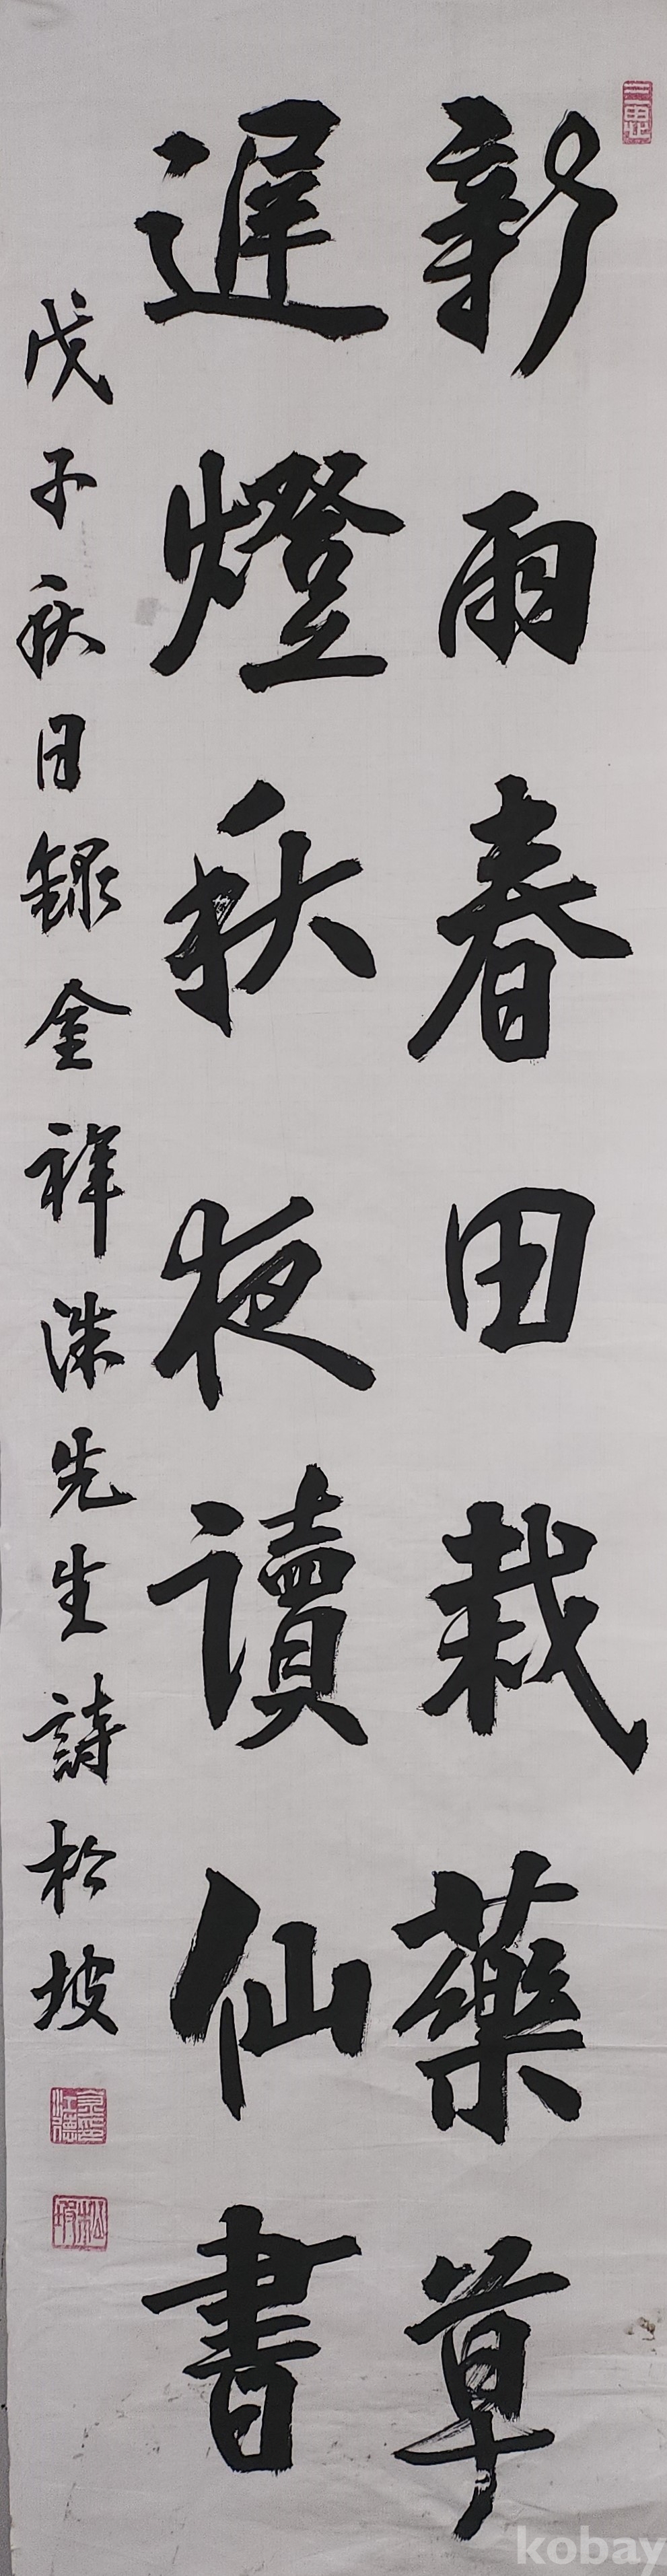 新雨春田栽藥草
遲燈秋夜讀仙書
戊子秋日錄金祥洙先生詩松坡
kobay